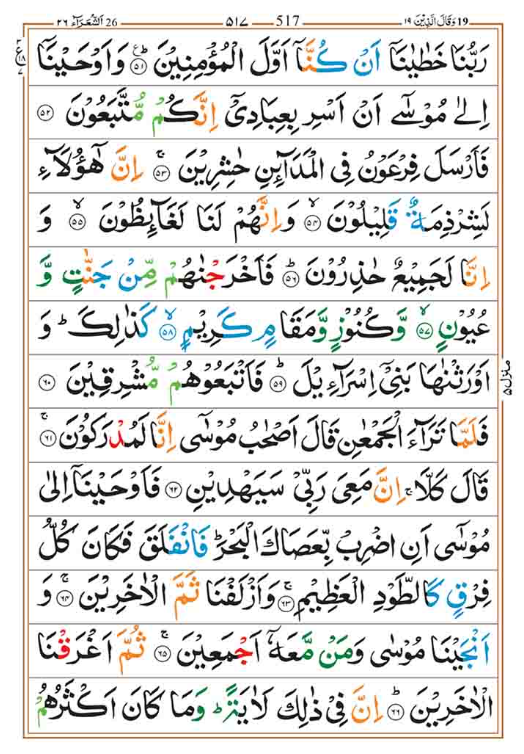 19 وَقَالَ الَّذِيْنَ ١٩
517 ٥١٧
26 اَلشُّعَرَآءُ ٢٦
رَبُّنَا خَطٰيٰنَاۤ اَنْ كُنَّاۤ اَوَّلَ الْمُؤْمِنِيْنَ ؕ۠ ۝٥١ وَاَوْحَيْنَاۤ
اِلٰى مُوْسٰۤى اَنْ اَسْرِ بِعِبَادِيْۤ اِنَّكُمْ مُّتَّبَعُوْنَ ۝٥٢
فَاَرْسَلَ فِرْعَوْنُ فِى الْمَدَآئِنِ حٰشِرِيْنَ ۚ ۝٥٣ اِنَّ هٰٓؤُلَآءِ
لَشِرْذِمَةٌ قَلِيْلُوْنَ ۙ ۝٥٤ وَاِنَّهُمْ لَنَا لَغَآئِظُوْنَ ۙ ۝٥٥ وَ
اِنَّا لَجَمِيْعٌ حٰذِرُوْنَ ؕ ۝٥٦ فَاَخْرَجْنٰهُمْ مِّنْ جَنّٰتٍ وَّ
عُيُوْنٍ ۙ ۝٥٧ وَّكُنُوْزٍ وَّمَقَامٍ كَرِيْمٍ ۙ ۝٥٨ كَذٰلِكَ ؕ وَ
اَوْرَثْنٰهَا بَنِيْۤ اِسْرَآءِيْلَ ؕ ۝٥٩ فَاَتْبَعُوْهُمْ مُّشْرِقِيْنَ ۝٦٠
فَلَمَّا تَرَآءَ الْجَمْعٰنِ قَالَ اَصْحٰبُ مُوْسٰۤى اِنَّا لَمُدْرَكُوْنَ ۚ ۝٦١
قَالَ كَلَّا ۚ اِنَّ مَعِىَ رَبِّيْ سَيَهْدِيْنِ ۝٦٢ فَاَوْحَيْنَاۤ اِلٰى
مُوْسٰۤى اَنِ اضْرِبْ بِّعَصَاكَ الْبَحْرَ ؕ فَانْفَلَقَ فَكَانَ كُلُّ
فِرْقٍ كَالطَّوْدِ الْعَظِيْمِ ۚ ۝٦٣ وَاَزْلَفْنَا ثَمَّ الْاٰخَرِيْنَ ۚ ۝٦٤ وَ
اَنْجَيْنَا مُوْسٰى وَمَنْ مَّعَهٗۤ اَجْمَعِيْنَ ۚ ۝٦٥ ثُمَّ اَغْرَقْنَا
الْاٰخَرِيْنَ ؕ ۝٦٦ اِنَّ فِيْ ذٰلِكَ لَاٰيَةً ؕ وَمَا كَانَ اَكْثَرُهُمْ
منزل ٥